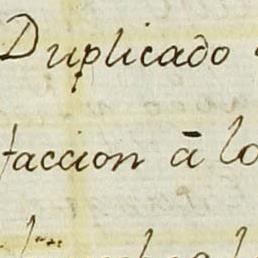 Duplicado
faccion ā lo